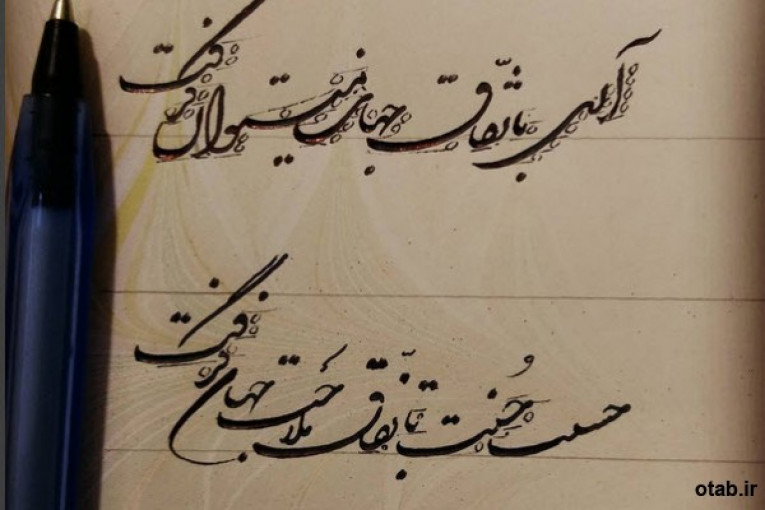 آری باتّفاق جهان میتوان گرفت
حسنت حُسنت باتّفاق ملاحت جهان گرفت
otab.ir